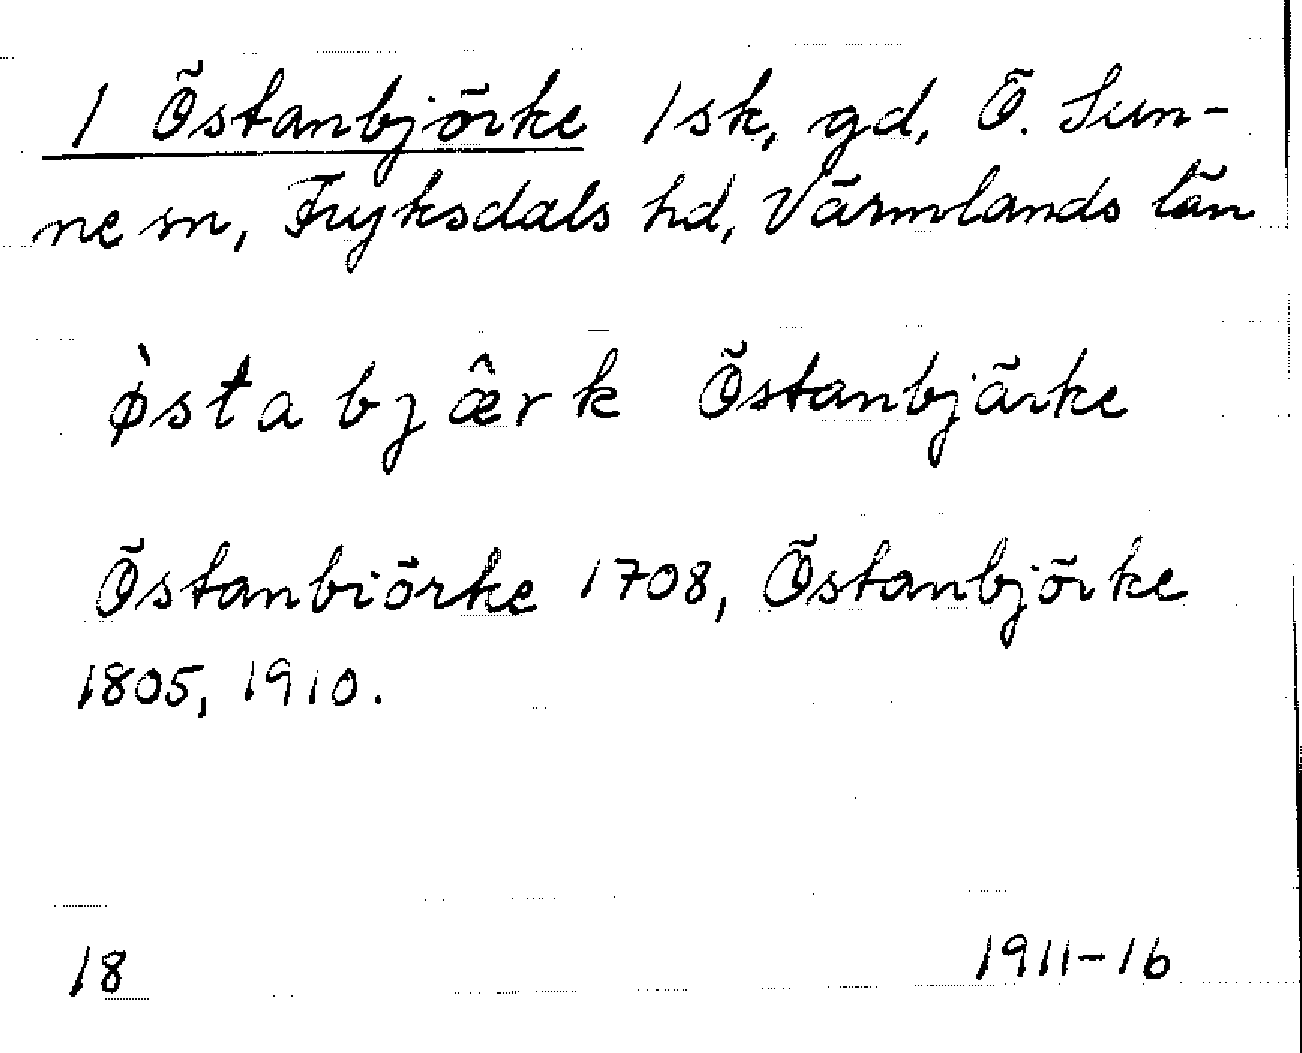 1 Östanbjörke 1 sk, gd, Ö. Sun-
ne sn, Fryksdals hd, Värmlands län
ø̀stabjæ̂rk Östanbjärke
Östanbiörke 1708, Östanbjörke
1805, 1910.
18 1911-16